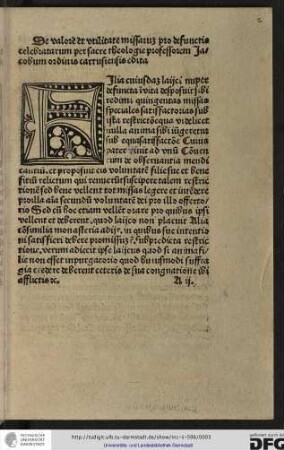 De valore et vtilitate missarum pro defunctis
celebratarum per sacre theologie professorem Ja
cobum ordinis cartusiensis edita
Filia cuiusdam laijci nuper
defuncta in vita desposuit sibi
redimi quingentas missas
speciales satisfactorias sub
ista restrictione qua videlicet
nulla anima sibi iungeretur
sub equa satisfactione Cuius
pater venit ad vnum Conuen
tum de obseruantia mendi
cantium et proposuit eis voluntatem filie sue et bene
ficium relictum qui
restric
tionem sed bene vellent tot missas legere et intendere
pro illa anima secundum voluntatem dei pro illo offerto
rio Sed cum hoc etiam vellent orare pro quibus ipsi
vellent et deberent quod laijco non placuit Alia
consimilia monasteria adijt in quibus sue intentio
ni satisfieri debere promissum sub predicta restric
tione verum adiecit ipse laijcus quod si anima fi
lie non esset in purgatorio quod huiusmodi suffra
gia cedere deberent ceteris de sua congnatione ibi
afflictis etc.
A ij.
2
http://tudigit.ulb.tu-darmstadt.de/show/inc-ii-506/0003
Universitäts- und Landesbibliothek Darmstadt
TECHNISCHE
UNIVERSITÄT
DARMSTADT
gefördert durch die
DFG